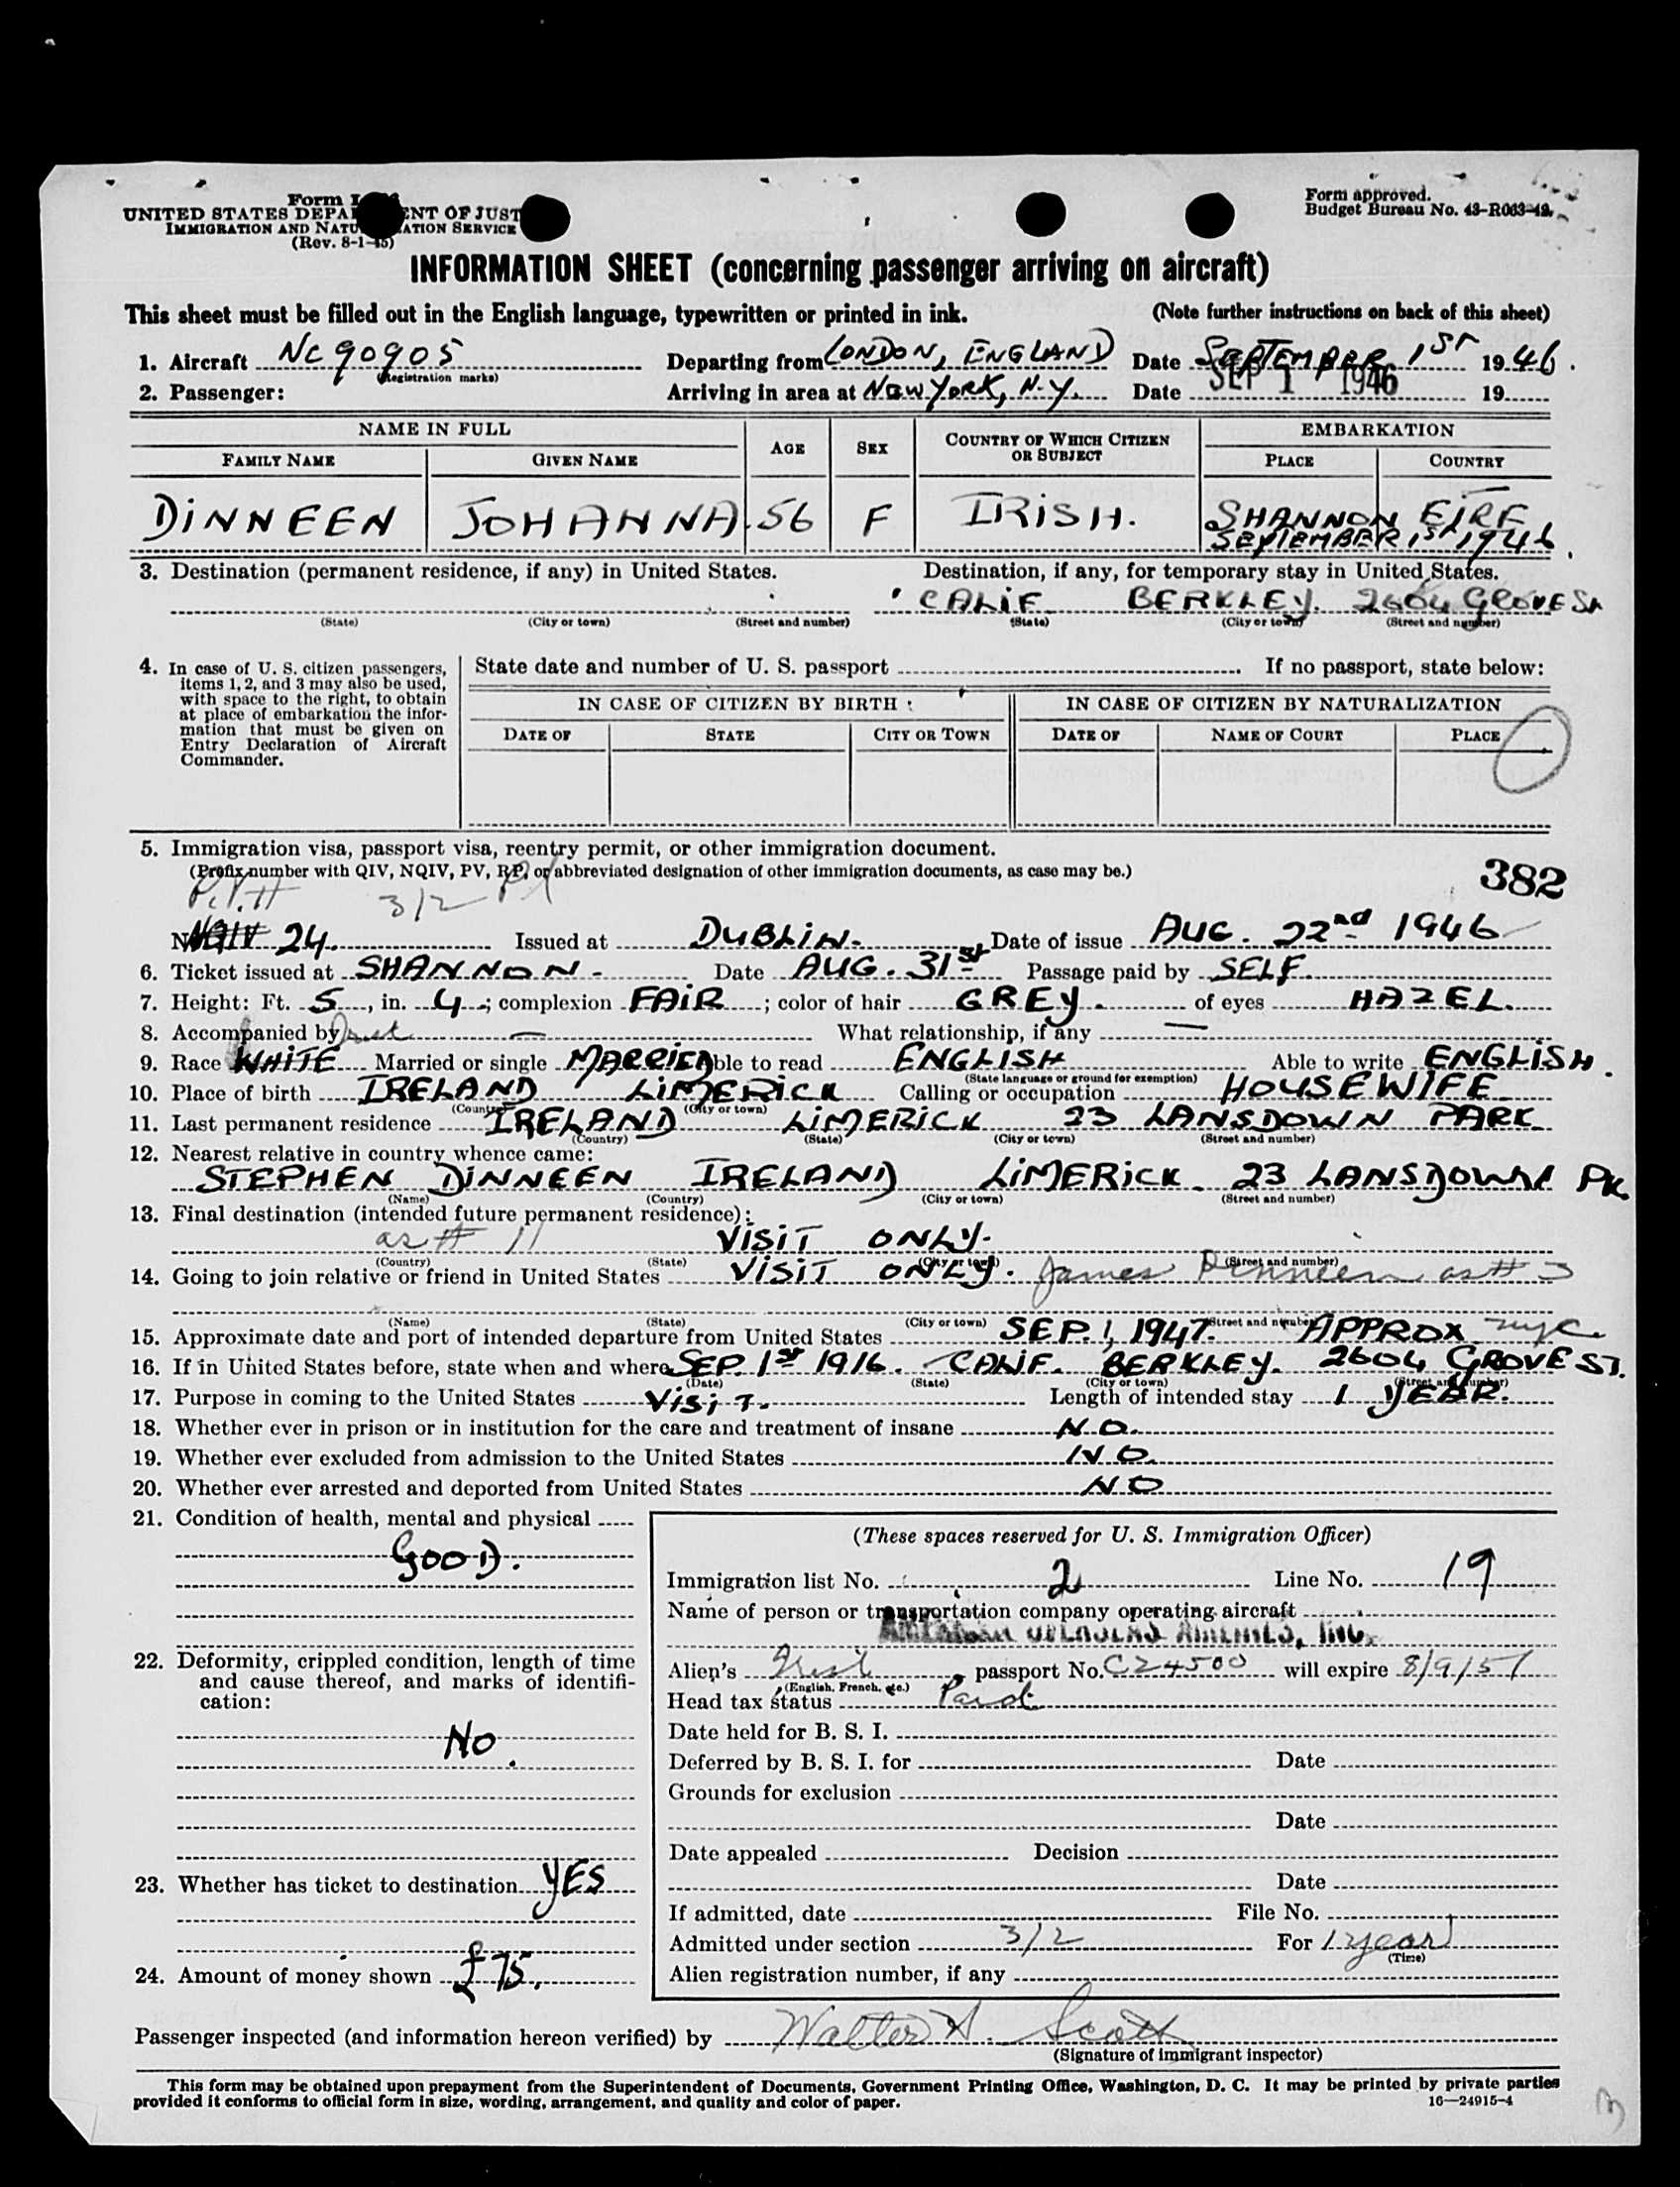 Form I
UNITED STATES DEPA ENT OF JUST
IMMIGRATION AND NATU ATION SERVICE
(Rev. 8-1-45)
Form approved.
Budget Bureau No. 43-R063-42.
INFORMATION SHEET (concerning passenger arriving on aircraft)
This sheet must be filled out in the English language, typewritten or printed in ink. (Note further instructions on back of this sheet)
1. Aircraft NC90905 Departing from LONDON, ENGLAND Date SEPTEMBER 1ST 1946.
(Registration marks)
2. Passenger: Arriving in area at NEW YORK, N.Y. Date SEP 1 1946 19
NAME IN FULL AGE SEX COUNTRY OF WHICH CITIZEN OR SUBJECT EMBARKATION
FAMILY NAME GIVEN NAME PLACE COUNTRY
DINNEEN JOHANNA. 56 F IRISH. SHANNON EIRE
SEPTEMBER 1ST 1946.
3. Destination (permanent residence, if any) in United States. Destination, if any, for temporary stay in United States.
CALIF. BERKLEY. 2604 GROVE ST
(State) (City or town) (Street and number) (State) (City or town) (Street and number)
4. In case of U. S. citizen passengers, items 1, 2, and 3 may also be used, with space to the right, to obtain at place of embarkation the information that must be given on Entry Declaration of Aircraft Commander.
State date and number of U. S. passport If no passport, state below:
IN CASE OF CITIZEN BY BIRTH IN CASE OF CITIZEN BY NATURALIZATION
DATE OF STATE CITY OR TOWN DATE OF NAME OF COURT PLACE
5. Immigration visa, passport visa, reentry permit, or other immigration document.
(Prefix number with QIV, NQIV, PV, RP, or abbreviated designation of other immigration documents, as case may be.)
382
P.V. # 3/2
24. Issued at DUBLIN. Date of issue AUG. 22nd 1946
6. Ticket issued at SHANNON - Date AUG. 31st Passage paid by SELF.
7. Height: Ft. 5, in. 4; complexion FAIR; color of hair GREY. of eyes HAZEL.
8. Accompanied by — What relationship, if any —
9. Race WHITE Married or single MARRIED Able to read ENGLISH Able to write ENGLISH.
(State language or ground for exemption)
10. Place of birth IRELAND LIMERICK Calling or occupation HOUSEWIFE
(Country) (City or town)
11. Last permanent residence IRELAND LIMERICK 23 LANSDOWN PARK
(Country) (State) (City or town) (Street and number)
12. Nearest relative in country whence came:
STEPHEN DINNEEN IRELAND LIMERICK. 23 LANSDOWNE PK.
(Name) (Country) (City or town) (Street and number)
13. Final destination (intended future permanent residence):
as # 11 VISIT ONLY.
(Country) (State) (City or town) (Street and number)
14. Going to join relative or friend in United States VISIT ONLY. James Dinneen as # 3
(Name) (State) (City or town) (Street and number)
15. Approximate date and port of intended departure from United States SEP. 1, 1947. APPROX nyc
16. If in United States before, state when and where SEP. 1st 1916. CALIF. BERKLEY. 2604 GROVE ST.
(Date) (State) (City or town) (Street and number)
17. Purpose in coming to the United States VISIT. Length of intended stay 1 YEAR.
18. Whether ever in prison or in institution for the care and treatment of insane NO.
19. Whether ever excluded from admission to the United States NO.
20. Whether ever arrested and deported from United States NO
21. Condition of health, mental and physical
GOOD.
22. Deformity, crippled condition, length of time and cause thereof, and marks of identification:
NO.
23. Whether has ticket to destination YES
24. Amount of money shown £75.
(These spaces reserved for U. S. Immigration Officer)
Immigration list No. 2 Line No. 19
Name of person or transportation company operating aircraft
AMERICAN OVERSEAS AIRLINES, INC.
Alien's Irish, passport No. C24500 will expire 8/9/51
(English, French, etc.)
Head tax status Paid
Date held for B. S. I.
Deferred by B. S. I. for Date
Grounds for exclusion
Date
Date appealed Decision
Date
If admitted, date File No.
Admitted under section 3/2 For 1 year
(Time)
Alien registration number, if any
Passenger inspected (and information hereon verified) by Walter Scott
(Signature of immigrant inspector)
This form may be obtained upon prepayment from the Superintendent of Documents, Government Printing Office, Washington, D. C. It may be printed by private parties
provided it conforms to official form in size, wording, arrangement, and quality and color of paper. 16—24915-4